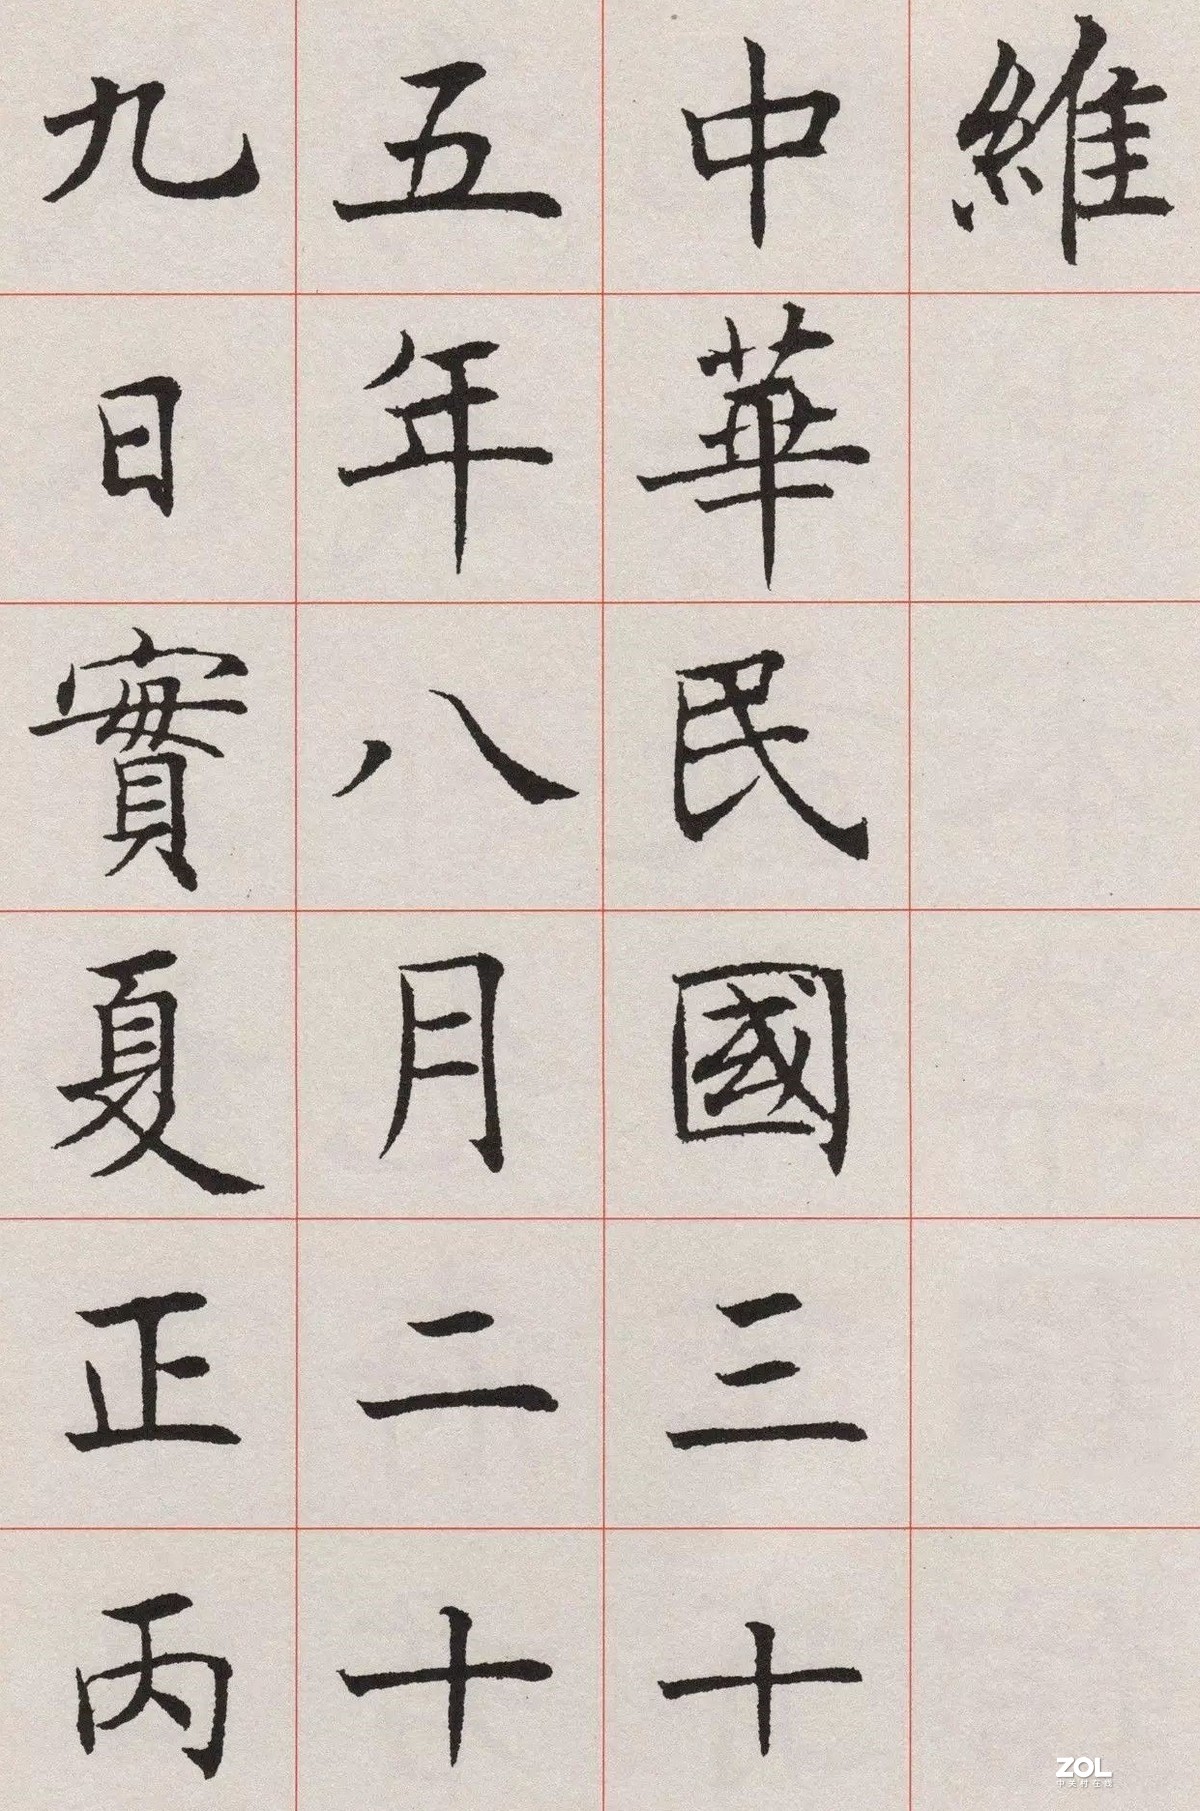 維
中華民國三十
五年八月二十
九日實夏正丙
ZOL
中关村在线